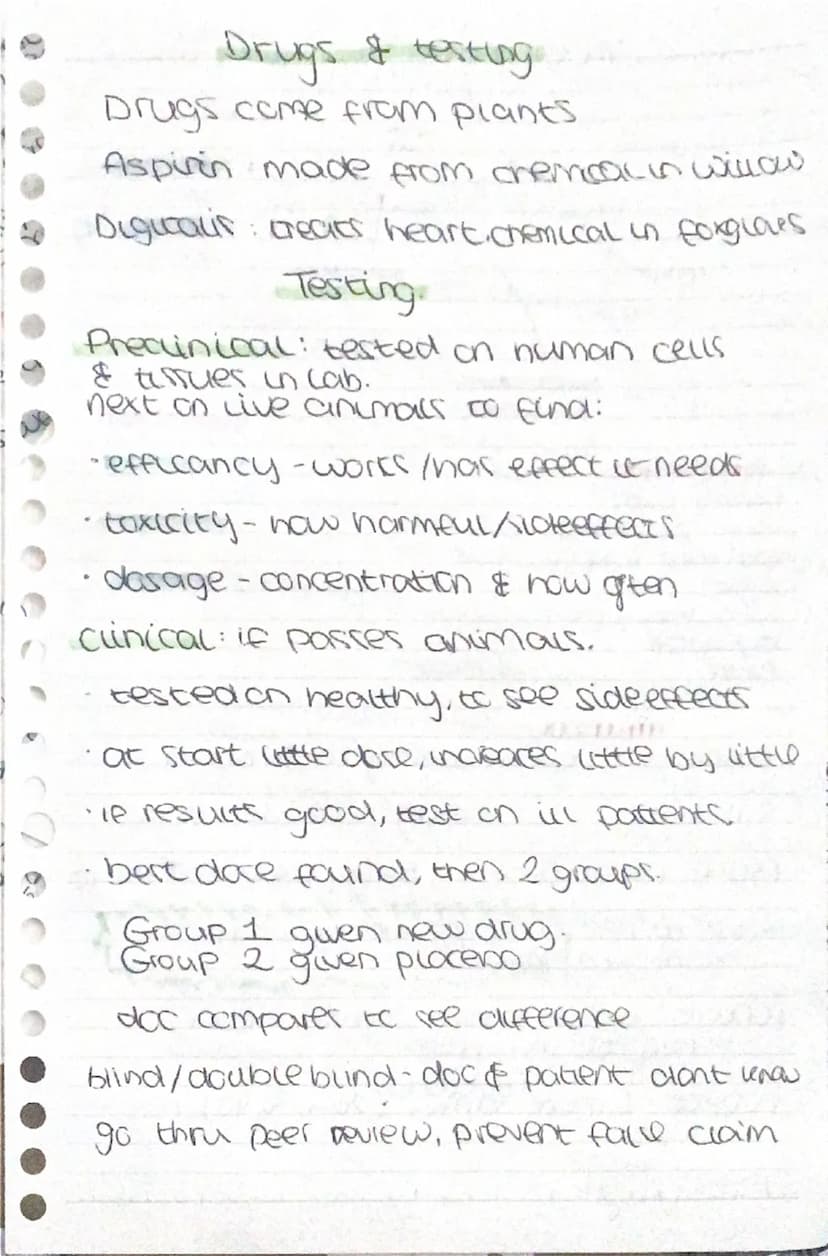 Drugs & testing
Drugs come from plants
Aspirin : made from chemical in willow
Digitalis : treats heart. chemical in foxgloves
Testing.
Preclinical : tested on human cells
& tissues in lab.
next on live animals to find:
· efficancy - works / has effect it needs
· toxicity - how harmful / side effects
· dosage - concentration & how often
Clinical : if passes animals.
· tested on healthy, to see side effects
· at start little dose, increases little by little
· if results good, test on ill patients.
· best dose found, then 2 groups.
Group 1 given new drug.
Group 2 given placebo
doc compares to see difference
blind / double blind - doc & patient dont know
go thru peer review, prevent false claim